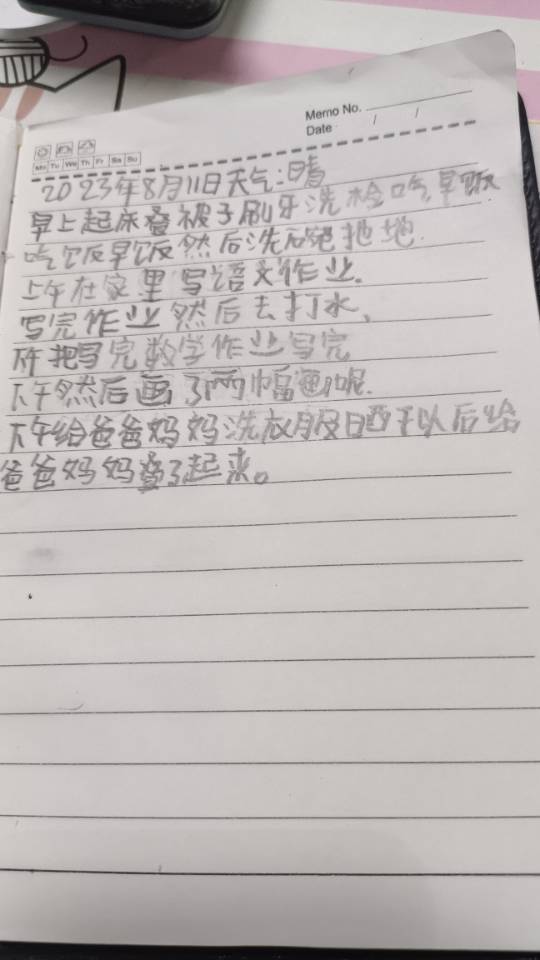 Memo No.
Date / /
Mo Tu We Th Fr Sa Su
2023年8月11日天气:晴
早上起床叠被子刷牙洗检吃早饭
吃饭早饭然后洗碗拖地.
上午在家里写语文作业.
写完作业然后去打水、
下午把写完数学作业写完
下午然后画了两幅画呢.
下午给爸爸妈妈洗衣服日晒干以后给
爸爸妈妈叠了起来。